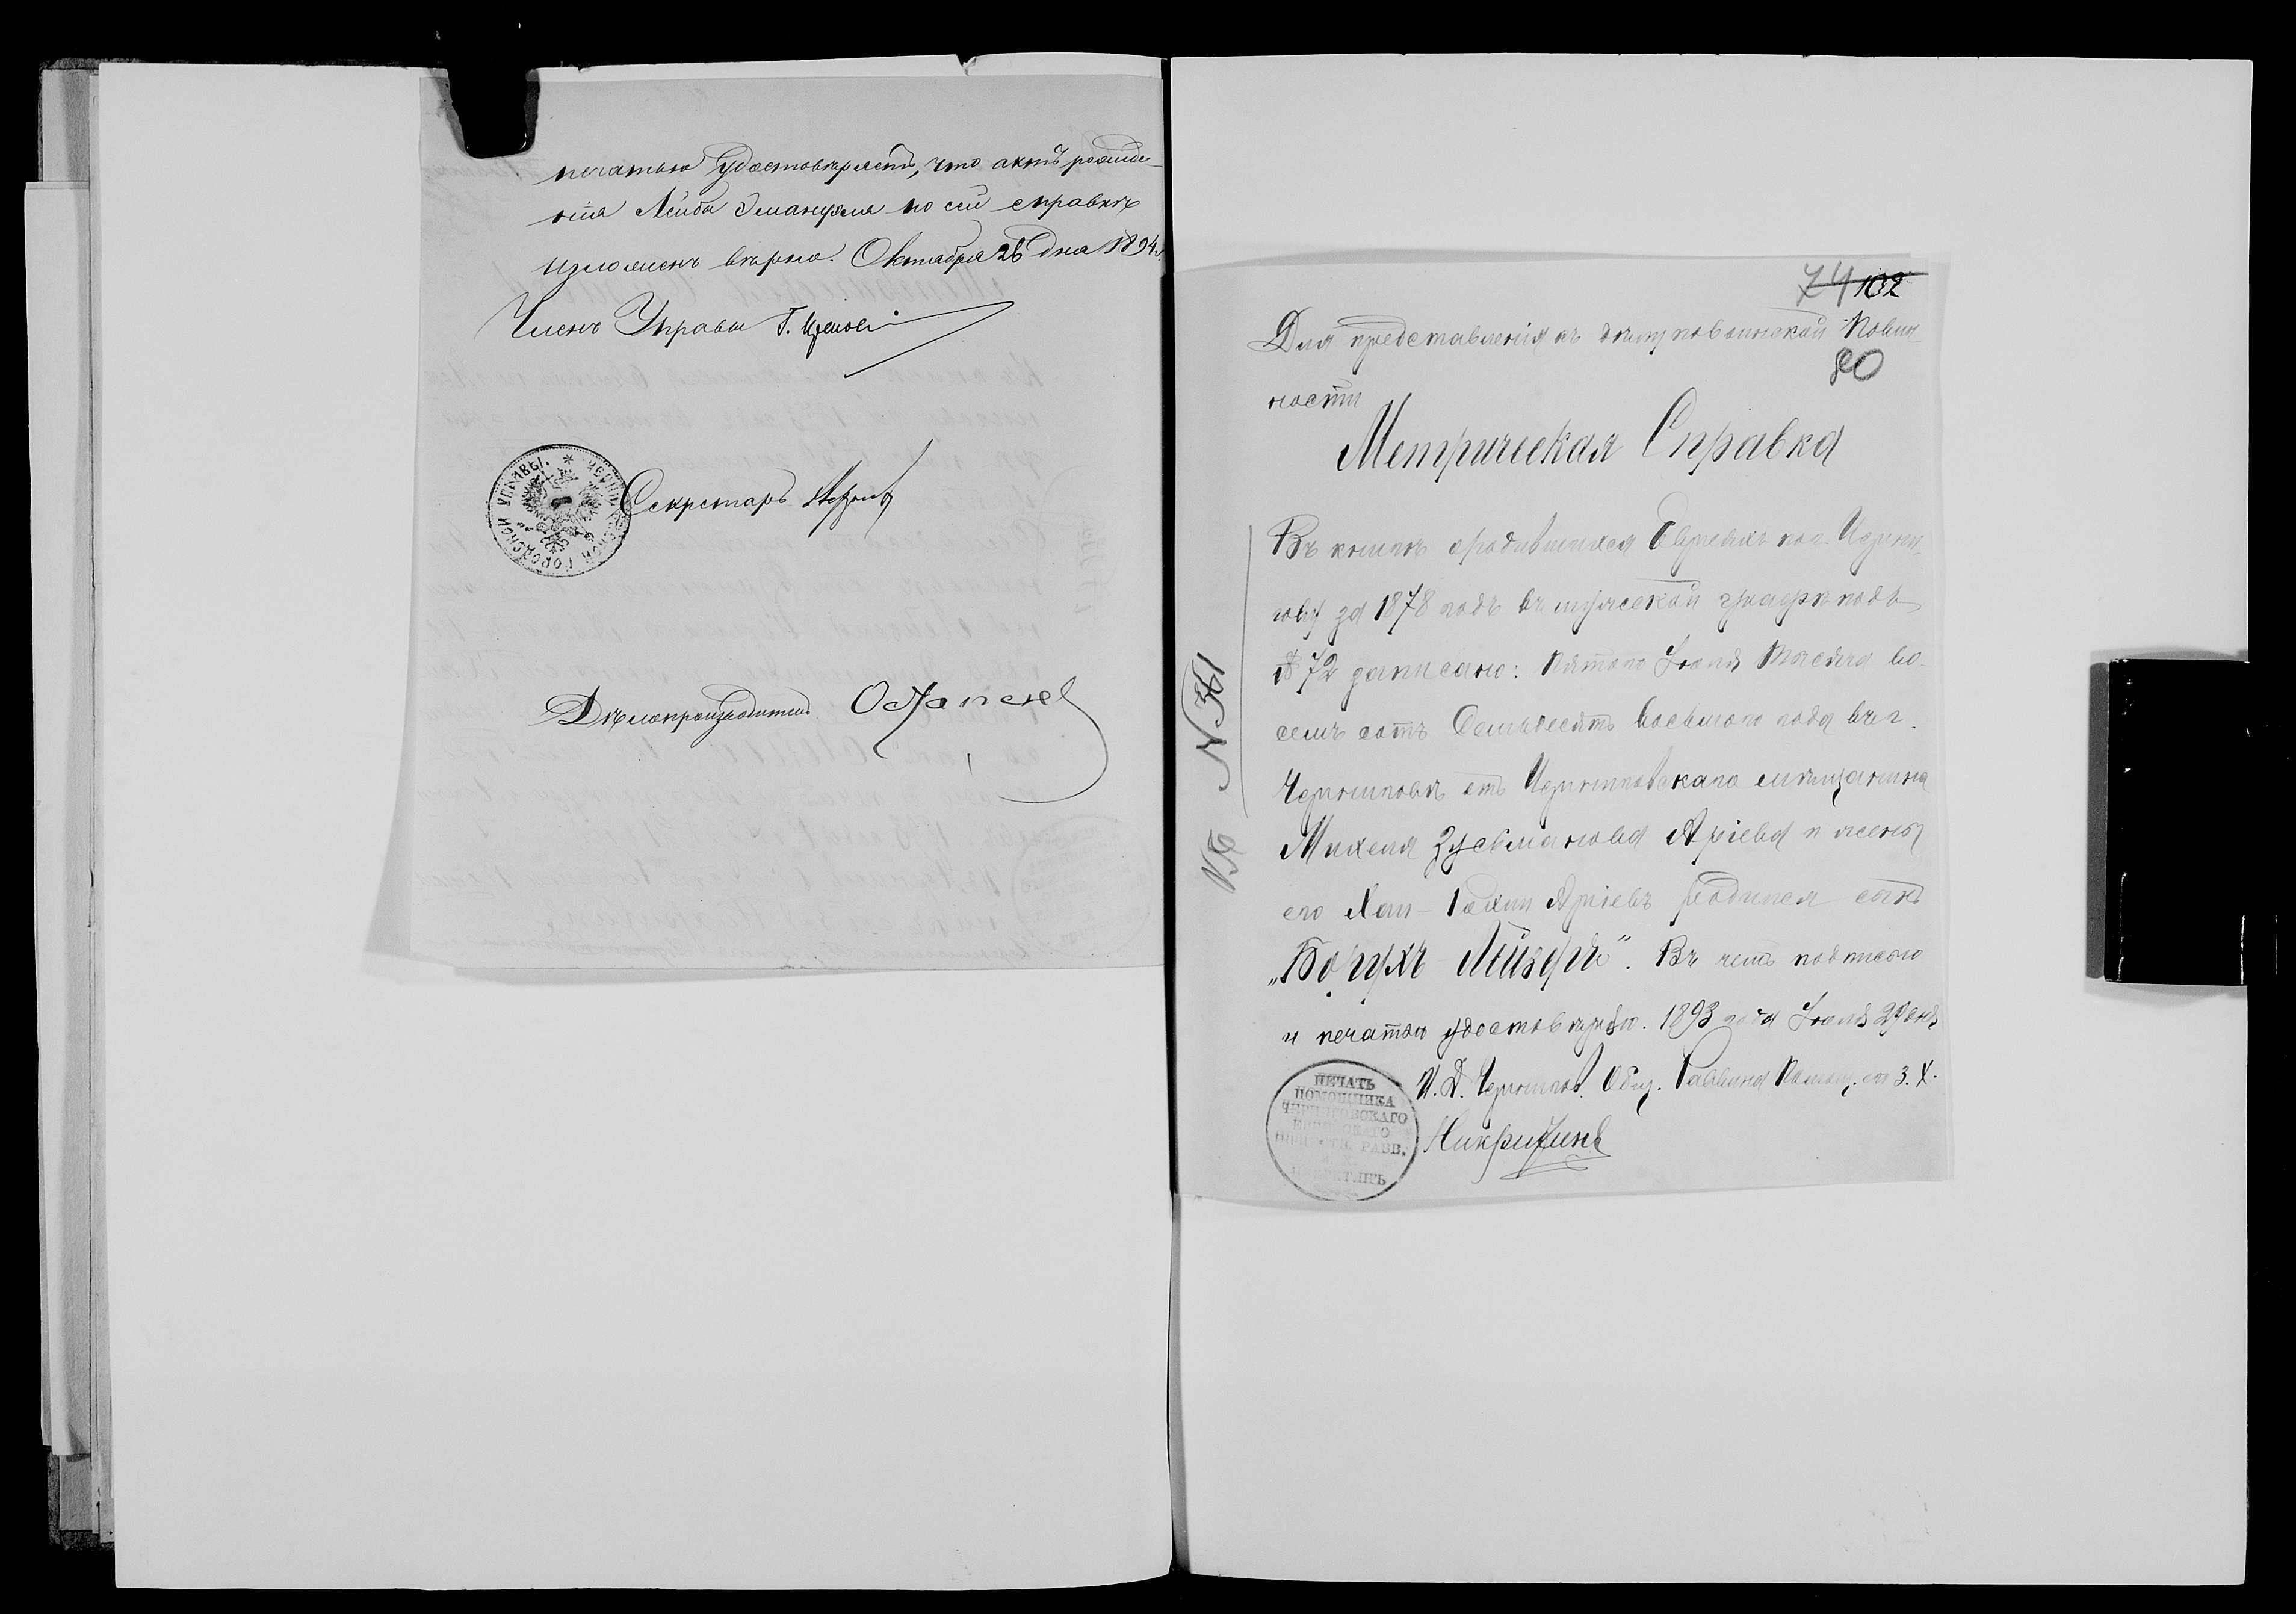 печатью удостовѣряетъ, что актъ рожде-
нія Лейбы Эмануеля по сей справкѣ
изложенъ вѣрно. Октября 26 дня 1894 г.
Членъ Управы
Секретарь
* ЧЕРНИГОВСКОЙ ГОРОДСКОЙ УПРАВЫ.
Дѣлопроизводитель
74 102
Для представленія къ дѣлу по воинской Повин-
80
ности
Метрическая Справка
Въ книгѣ о родившихся Евреяхъ по г. Черни-
гову за 1878 годъ въ мужеской графѣ подъ
№ 72 записано: Пятого Іюля Мѣсяца во-
семь сотъ Семьдесятъ восьмого года въ г.
Черниговѣ отъ Черниговскаго мѣщанина
Михеля Зусьманова Аріева и жены
его Хаи-Рохли Аріевъ родился сынъ
„Борухъ-Лейзеръ". Въ чемъ подписью
и печатью удостовѣряю. 1893 года Іюля 29 дня
И. Д. Чернигов. Общ. Раввина Помощ. его З. Х.
Никритинъ
№ 361
ПЕЧАТЬ
ПОМОЩНИКА
ЧЕРНИГОВСКАГО
ЕВРЕЙСКАГО
ОБЩЕСТВ. РАВВ.